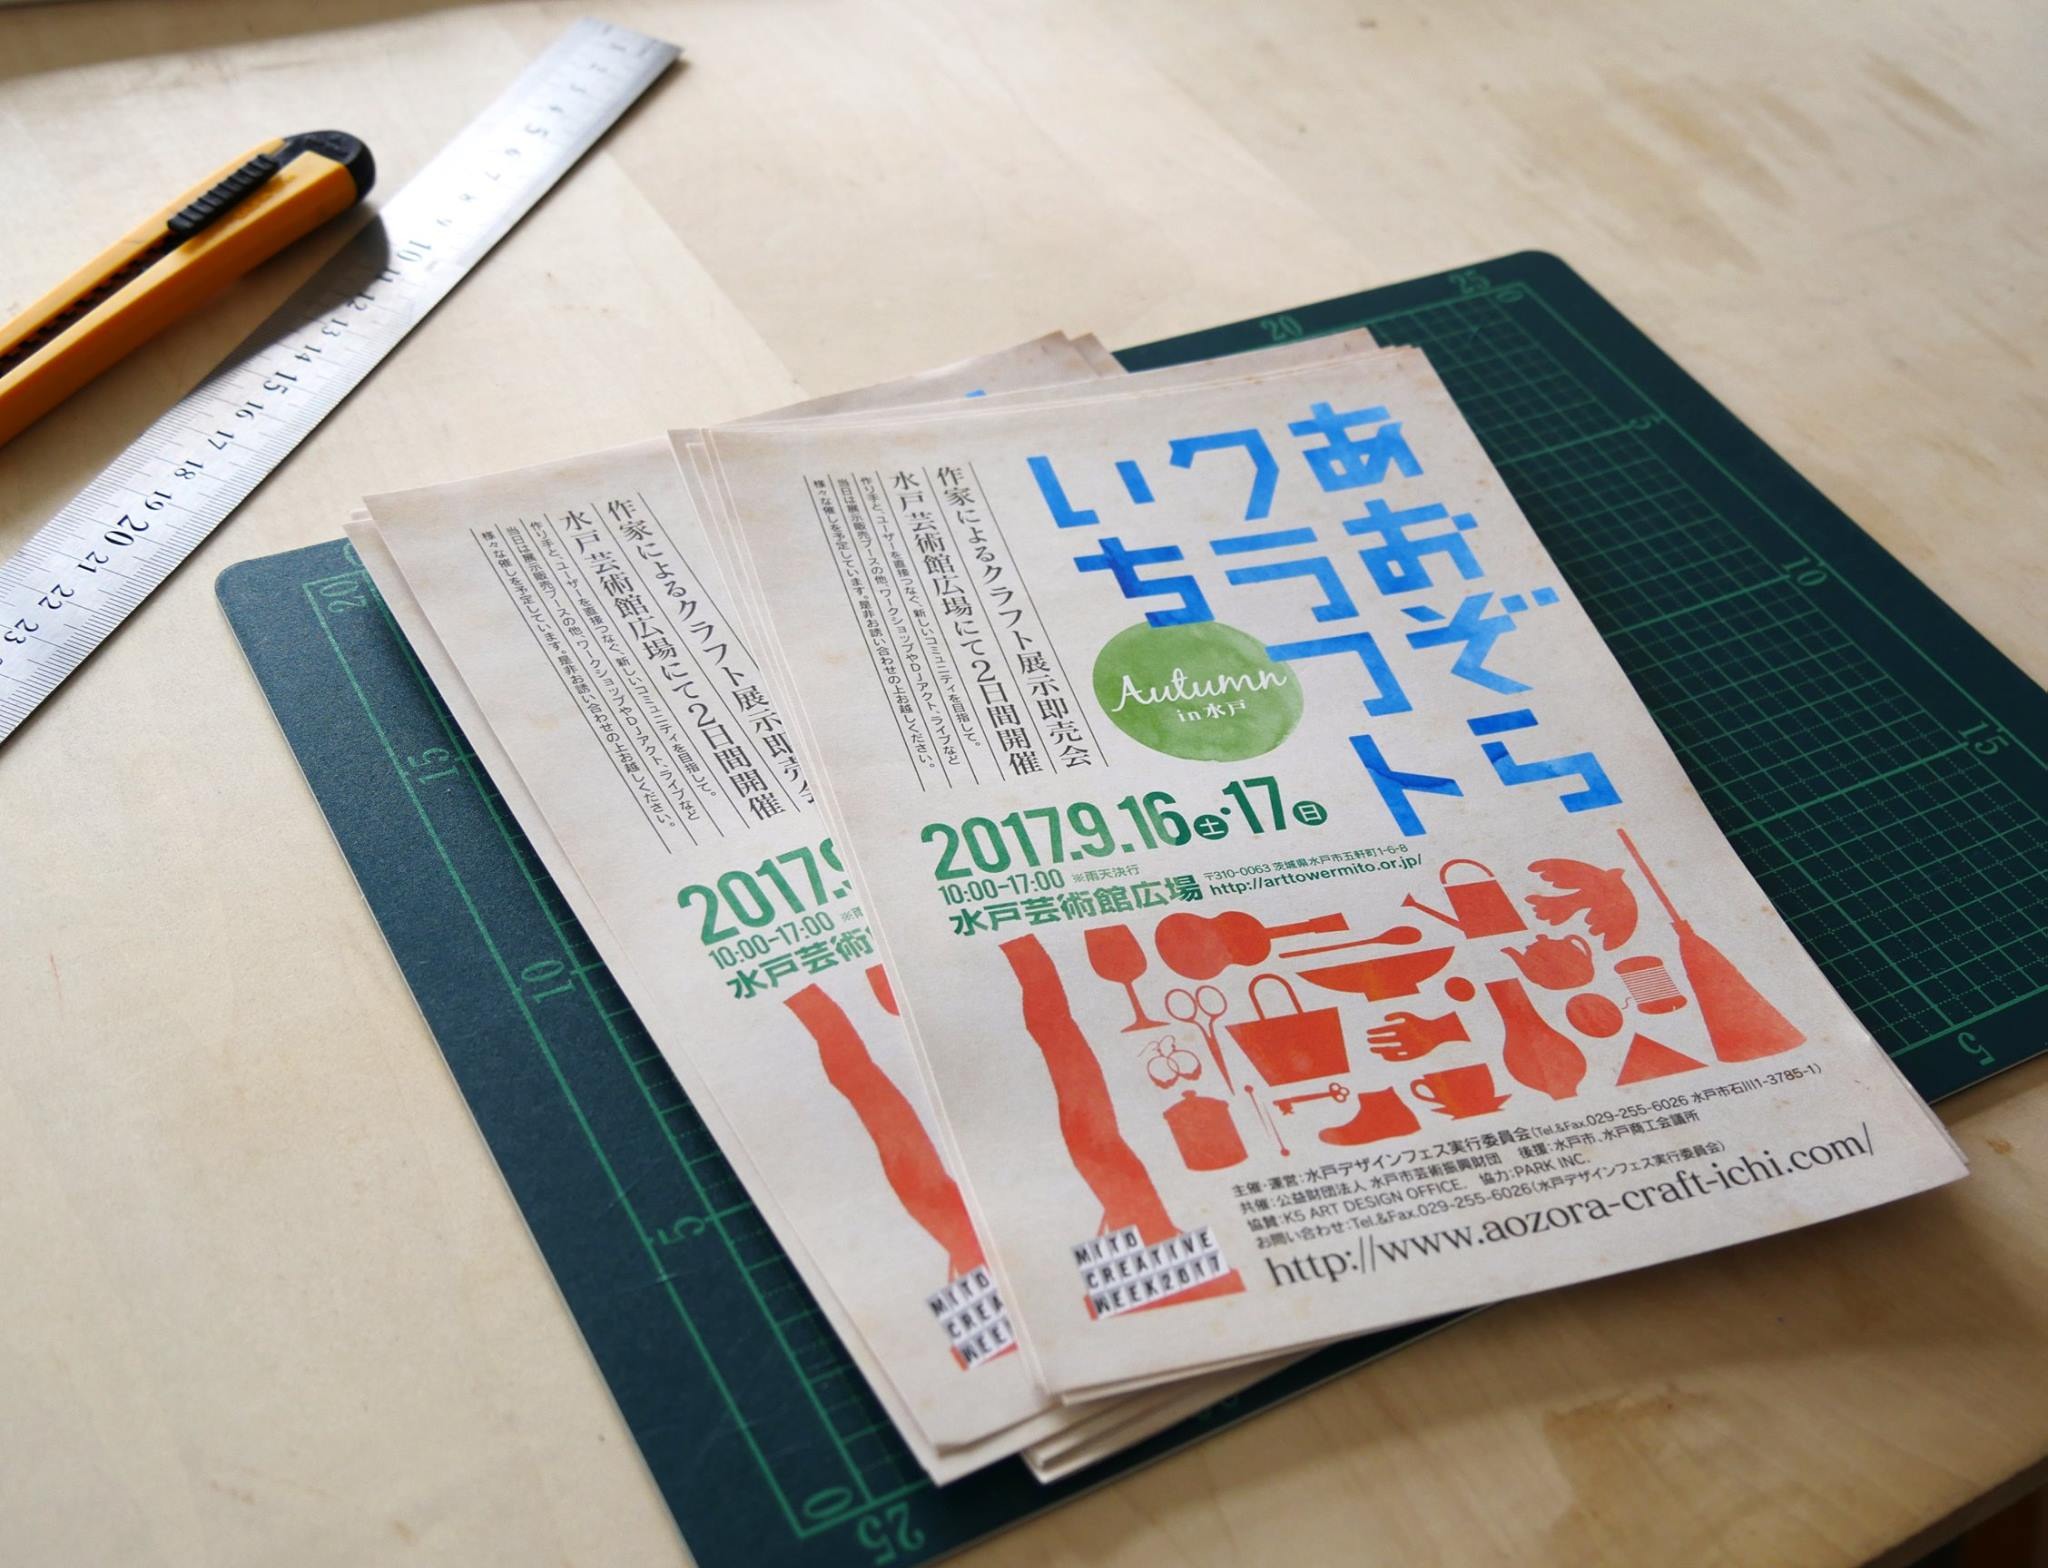 あおぞら
クラフト
いち
Autumn
in 水戸
作家によるクラフト展示即売会
水戸芸術館広場にて2日間開催
作り手と、ユーザーを直接つなぐ、新しいコミュニティを目指して。
当日は展示販売ブースの他、ワークショップやDJアクト、ライブなど
様々な催しを予定しています。是非お誘い合わせの上お越しください。
2017.9.16土・17日
10:00-17:00 ※雨天決行
水戸芸術館広場
〒310-0063 茨城県水戸市五軒町1-6-8
http://arttowermito.or.jp/
MITO
CREATIVE
WEEK2017
主催・運営:水戸デザインフェス実行委員会(Tel.&Fax.029-255-6026 水戸市石川1-3785-1)
共催:公益財団法人 水戸市芸術振興財団 後援:水戸市、水戸商工会議所
協賛:K5 ART DESIGN OFFICE. 協力:PARK INC.
お問い合わせ:Tel.&Fax.029-255-6026(水戸デザインフェス実行委員会)
http://www.aozora-craft-ichi.com/
作家によるクラフト展示即売
水戸芸術館広場にて2日間開催
作り手と、ユーザーを直接つなぐ、新しいコミュニティを目指して。
当日は展示販売ブースの他、ワークショップやDJアクト、ライブなど
様々な催しを予定しています。是非お誘い合わせの上お越しください。
2017.9
10:00-17:00
水戸芸術
MITO
CREA
WEE
1 2 3 4 5 6 7 8 9 10 11 12 13 14 15 16 17 18 19 20 21 22 23
20 15 10 5 0
25
20 25
0 5 10 15
5